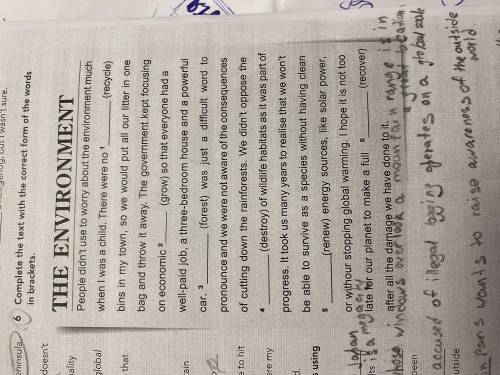 6 Complete the text with the correct form of the words
in brackets.
THE ENVIRONMENT
People didn't use to worry about the environment much
when I was a child. There were no 1 ______ (recycle)
bins in my town, so we would put all our litter in one
bag and throw it away. The government kept focusing
on economic 2 ______ (grow) so that everyone had a
well-paid job, a three-bedroom house and a powerful
car. 3 ______ (forest) was just a difficult word to
pronounce and we were not aware of the consequences
of cutting down the rainforests. We didn't oppose the
4 ______ (destroy) of wildlife habitats as it was part of
progress. It took us many years to realise that we won't
be able to survive as a species without having clean
5 ______ (renew) energy sources, like solar power,
or withour stopping global warming. I hope it is not too
late for our planet to make a full 6 ______ (recover)
after all the damage we have done to it.
Japan
is a megacity
whose windows overlook a mountain range is in
a great location
accused of illegal logging operates on a global scale
in paris wants to raise awareness of the outside
world
but I wasn't sure.
peninsula
doesn't
global
that
to hit
ere my
s using
been
outside